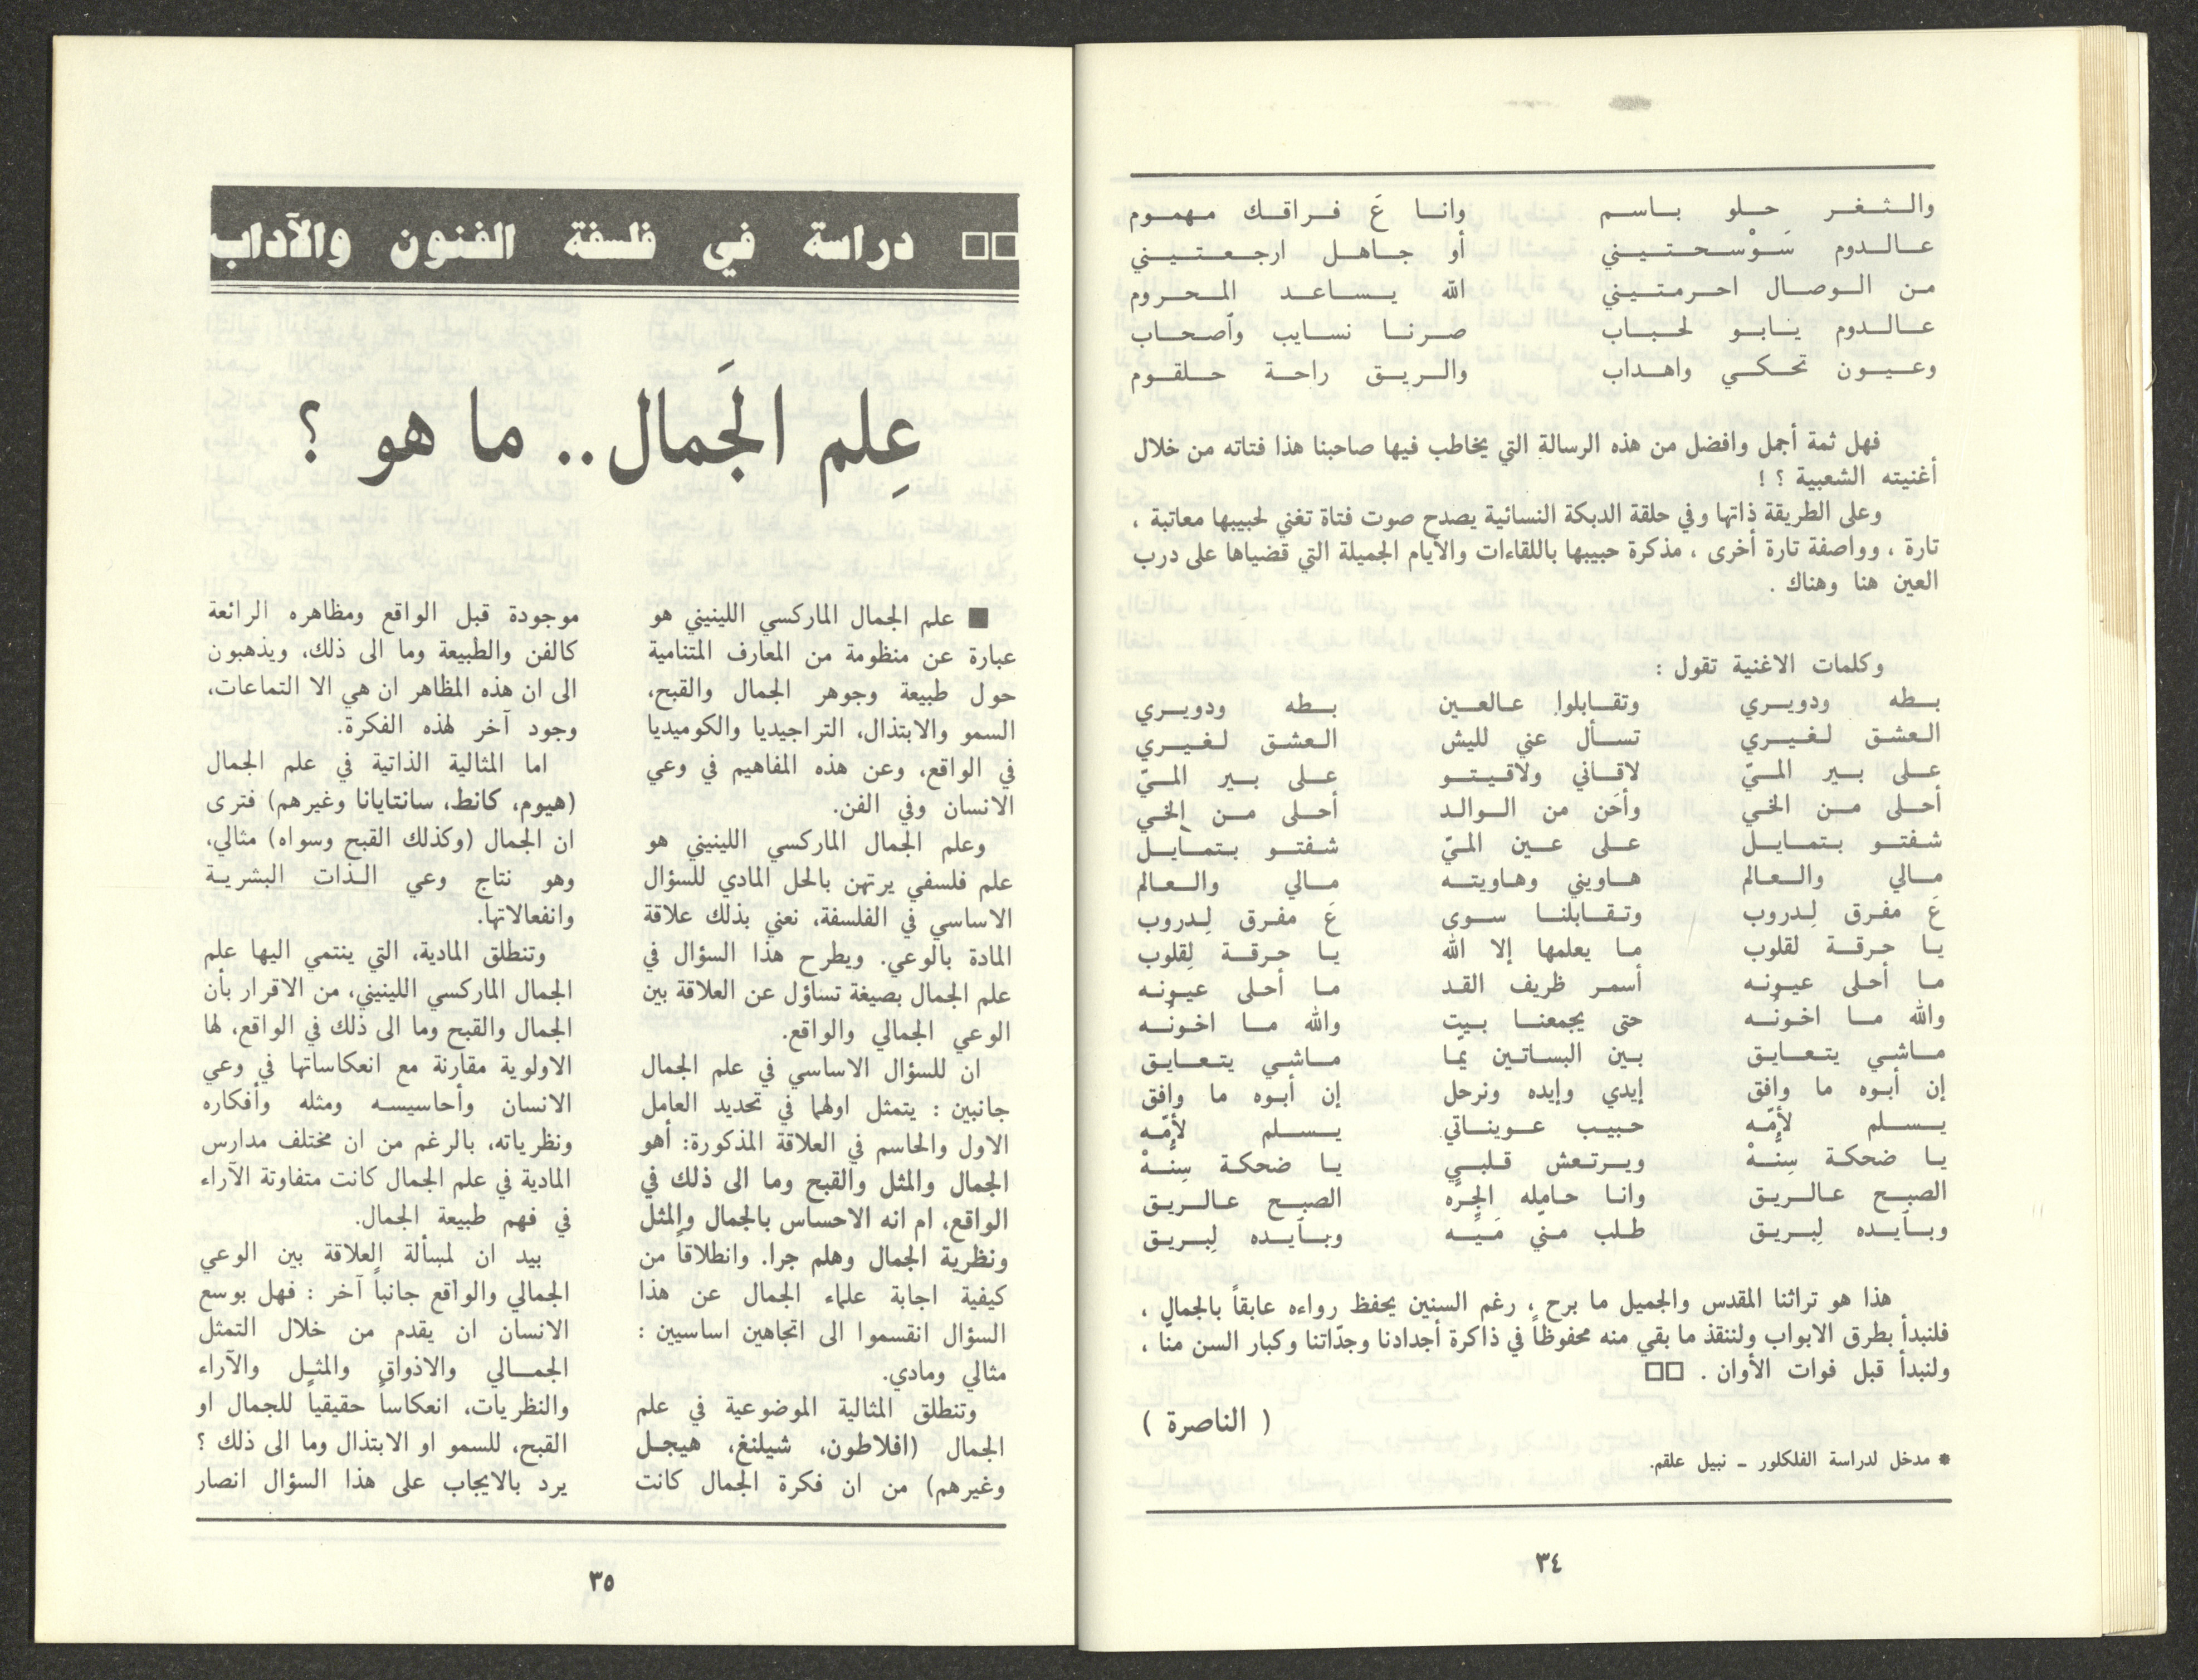 والثغر حلو باسم وانا عَ فراقك مهموم
عالدوم سَوْسحتيني أو جاهل ارجعتيني
من الوصال احرمتيني الله يساعد المحروم
عالدوم يابو لحباب صرنا نسايب وأصحاب
وعيون تحكي واهداب والريق راحة حلقوم
فهل ثمة أجمل وافضل من هذه الرسالة التي يخاطب فيها صاحبنا هذا فتاته من خلال
أغنيته الشعبية ؟ !
وعلى الطريقة ذاتها وفي حلقة الدبكة النسائية يصدح صوت فتاة تغني لحبيبها معاتبة ،
تارة ، وواصفة تارة أخرى ، مذكرة حبيبها باللقاءات والأيام الجميلة التي قضياها على درب
العين هنا وهناك .
وكلمات الاغنية تقول :
بطه ودويري وتقابلوا عالعين بطه ودويري
العشق لغيري تسأل عني لليش العشق لغيري
على بير الميّ لاقاني ولاقيتو على بير الميّ
أحلى من الخي وأحَن من الوالد أحلى من الخي
شفتو بتمايل على عين الميّ شفتو بتمايل
مالي والعالم هاويني وهاويته مالي والعالم
عَ مفرق لِدروب وتقابلنا سوى عَ مفرق لِدروب
يا حرقة لقلوب ما يعلمها إلا الله يا حرقة لِقلوب
ما أحلى عيونه أسمر ظريف القد ما أحلى عيونه
والله ما اخونُه حتى يجمعنا بيت والله ما اخونُه
ماشي يتعايق بين البساتين يمّا ماشي يتعايق
إن أبوه ما وافق إيدي وإيده ونرحل إن أبوه ما وافق
يسلم لأُمّه حبيب عويناتي يسلم لأُمّه
يا ضحكة سِنهْ ويرتعش قلبي يا ضحكة سِنهْ
الصبح عالريق وانا حامله الجرّه الصبح عالريق
وبأيده لِبريق طلب منّي مَيّه وبأيده لِبريق
هذا هو تراثنا المقدس والجميل ما برح ، رغم السنين يحفظ رواءه عابقاً بالجمال ،
فلنبدأ بطرق الابواب ولننقذ ما بقي منه محفوظاً في ذاكرة أجدادنا وجدّاتنا وكبار السن منا ،
ولنبدأ قبل فوات الأوان . □□
( الناصرة )
* مدخل لدراسة الفلكلور ــ نبيل علقم.
٣٤
□□ دراسة في فلسفة الفنون والآداب
عِلم الجَمال.. ما هو ؟
■ علم الجمال الماركسي اللينيني هو
عبارة عن منظومة من المعارف المتنامية
حول طبيعة وجوهر الجمال والقبح،
السمو والابتذال، التراجيديا والكوميديا
في الواقع، وعن هذه المفاهيم في وعي
الانسان وفي الفن.
وعلم الجمال الماركسي اللينيني هو
علم فلسفي يرتهن بالحل المادي للسؤال
الاساسي في الفلسفة، نعني بذلك علاقة
المادة بالوعي. ويطرح هذا السؤال في
علم الجمال بصيغة تساؤل عن العلاقة بين
الوعي الجمالي والواقع.
ان للسؤال الاساسي في علم الجمال
جانبين : يتمثل اولهما في تحديد العامل
الاول والحاسم في العلاقة المذكورة: أهو
الجمال والمثل والقبح وما الى ذلك في
الواقع، ام انه الاحساس بالجمال والمثل
ونظرية الجمال وهلم جرا. وانطلاقاً من
كيفية اجابة علماء الجمال عن هذا
السؤال انقسموا الى اتجاهين اساسيين :
مثالي ومادي.
وتنطلق المثالية الموضوعية في علم
الجمال (افلاطون، شيلنغ، هيجل
وغيرهم) من ان فكرة الجمال كانت
موجودة قبل الواقع ومظاهره الرائعة
كالفن والطبيعة وما الى ذلك، ويذهبون
الى ان هذه المظاهر ان هي الا التماعات،
وجود آخر لهذه الفكرة.
اما المثالية الذاتية في علم الجمال
(هيوم، كانط، سانتايانا وغيرهم) فترى
ان الجمال (وكذلك القبح وسواه) مثالي،
وهو نتاج وعي الذات البشرية
وانفعالاتها.
وتنطلق المادية، التي ينتمي اليها علم
الجمال الماركسي اللينيني، من الاقرار بأن
الجمال والقبح وما الى ذلك في الواقع، لها
الاولوية مقارنة مع انعكاساتها في وعي
الانسان وأحاسيسه ومثله وأفكاره
ونظرياته، بالرغم من ان مختلف مدارس
المادية في علم الجمال كانت متفاوتة الآراء
في فهم طبيعة الجمال.
بيد ان لمسألة العلاقة بين الوعي
الجمالي والواقع جانباً آخر : فهل بوسع
الانسان ان يقدم من خلال التمثل
الجمالي والاذواق والمثل والآراء
والنظريات، انعكاساً حقيقياً للجمال او
القبح، للسمو او الابتذال وما الى ذلك ؟
يرد بالايجاب على هذا السؤال انصار
٣٥